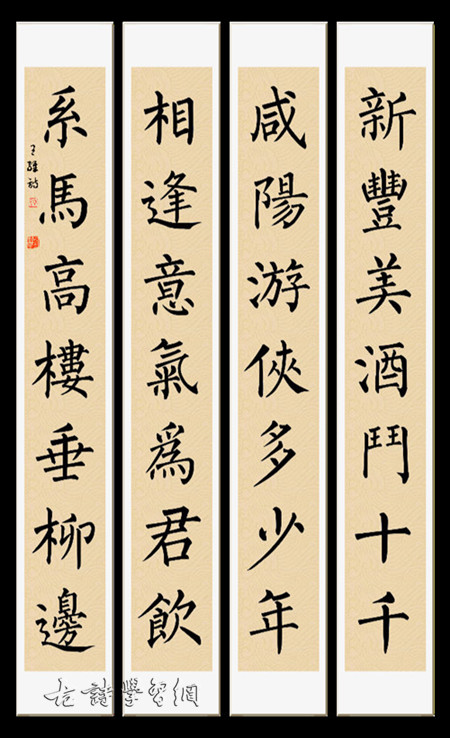 新豐美酒鬥十千
咸陽游俠多少年
相逢意氣爲君飲
系馬高樓垂柳邊
王維詩